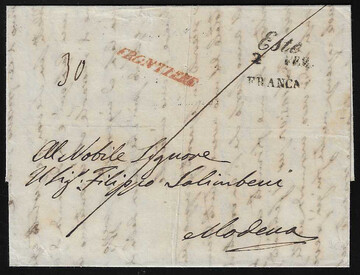 30
FRONTIERE
Este
2
FRANCA
Al Nobile Signore
Il Sig: Filippo Salimbeni
Modena